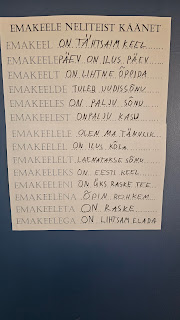 EMAKEELE NELITEIST KÄÄNET
EMAKEEL ON TÄHTSAIM KEEL
EMAKEELEPÄEV ON ILUS PÄEV
EMAKEELT ON LIHTNE ÕPPIDA
EMAKEELDE TULEB UUDISSÕNU
EMAKEELES ON PALJU SÕNU
EMAKEELEST ON PALJU KASU
EMAKEELELE OLEN MA TÄNULIK
EMAKEELEL ON ILUS KÕLA
EMAKEELELT LAENATAKSE SÕNU
EMAKEELEKS ON EESTI KEEL
EMAKEELENI ON ÜKS RASKE TEE
EMAKEELENA ÕPIN ROHKEM
EMAKEELETA ON RASKE
EMAKEELEGA ON LIHTSAM ELADA